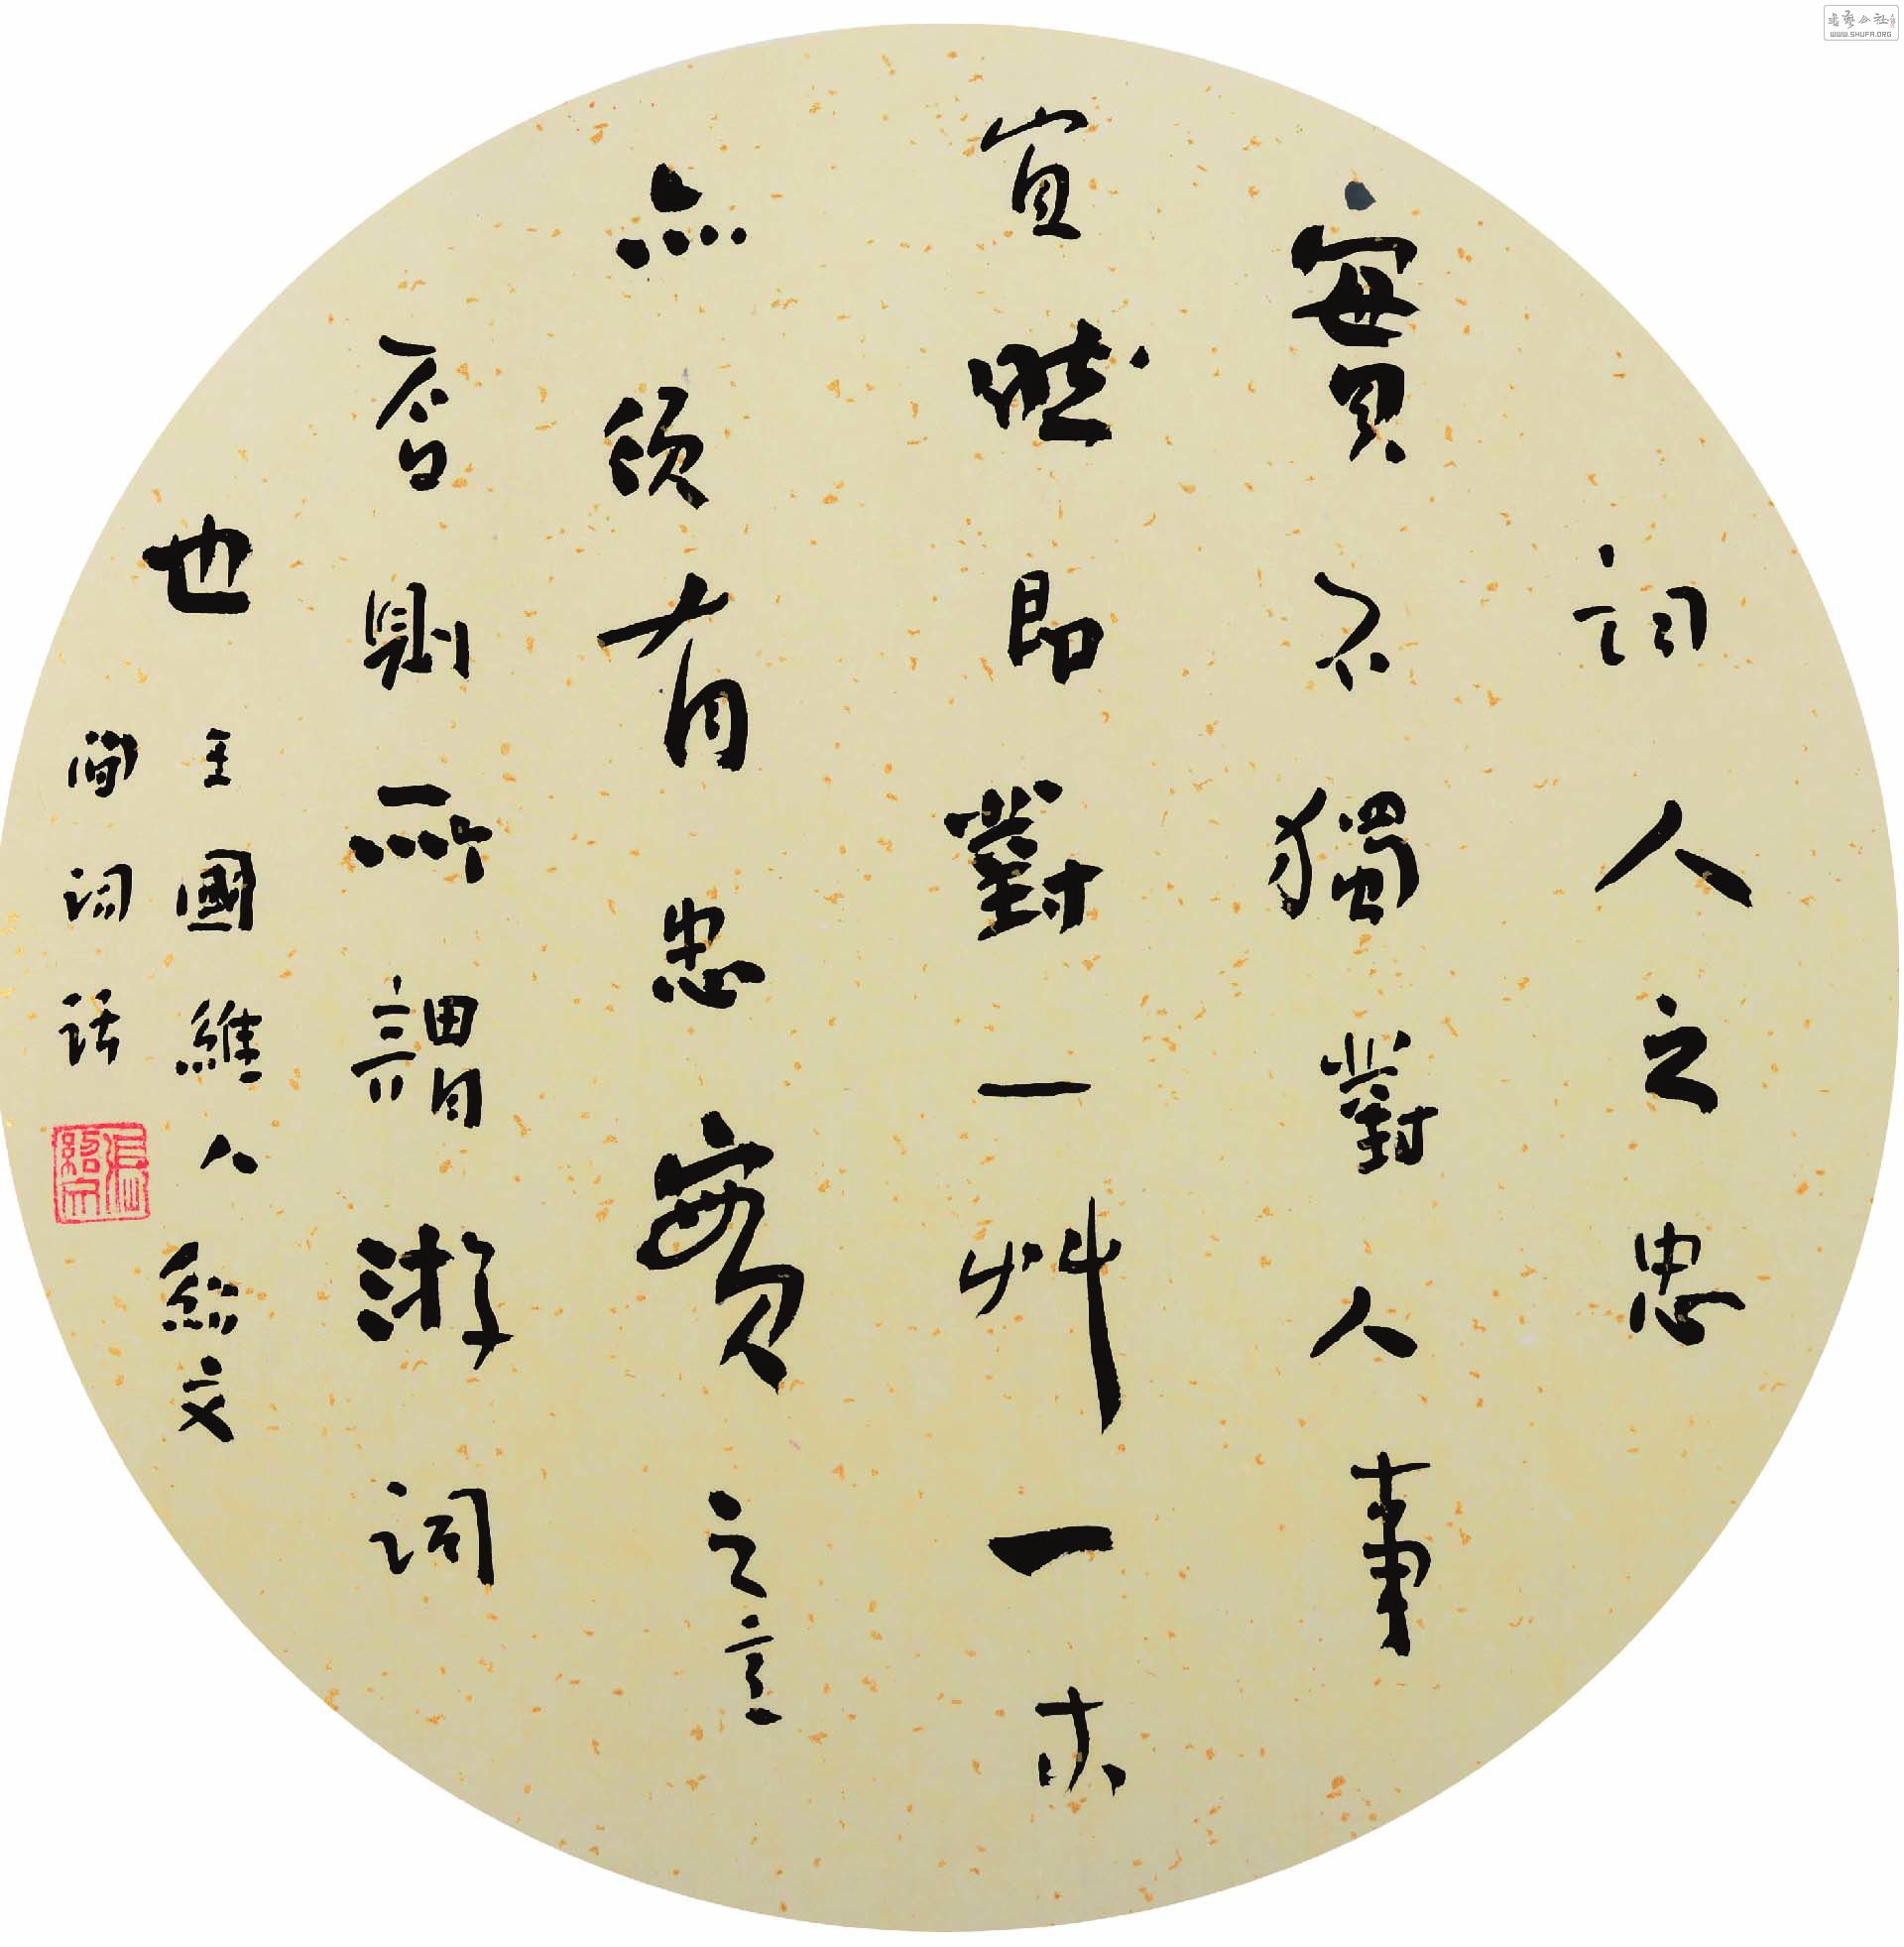 詞人之忠
實不獨對人事
宜然即對一艸一木
亦須有忠實之意
否則所謂游詞
也
王國維人
間詞話
紹文
書藝公社
WWW.SHUFA.ORG